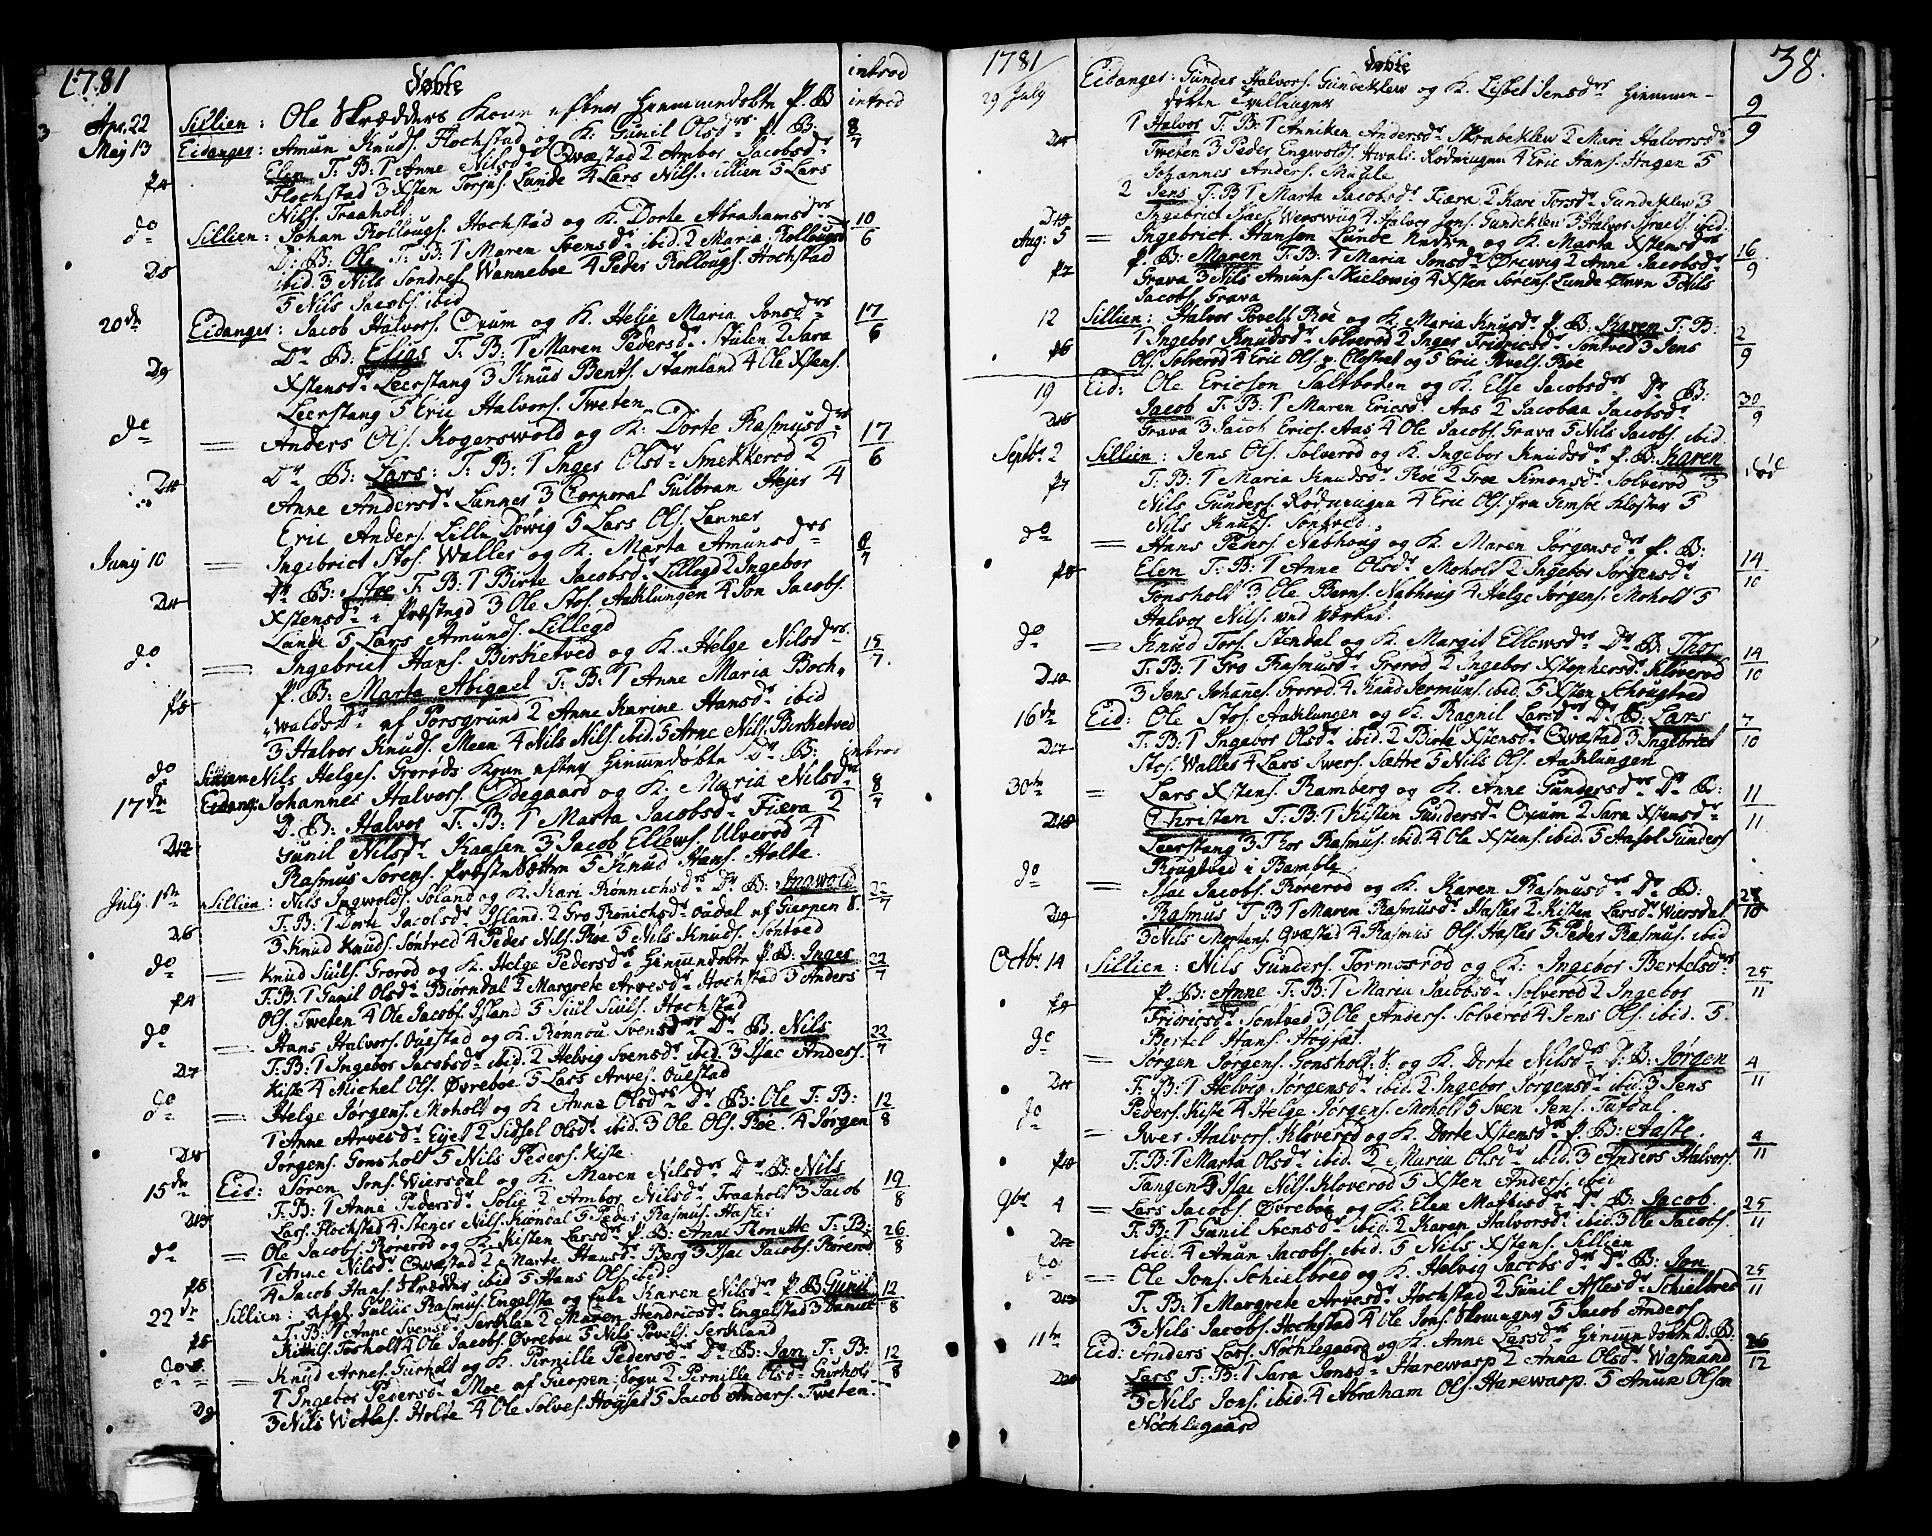 1781
Døbte
introd
Apr. 22 Sillien: Ole Skrædders Kone efter Hiemmedøbte P. B. introd
May 13 Eidanger: Amun Knuds. Flochstad og K. Gunil Olsdr P. B: 8/7
Elen T. B: 1 Anne Nilsdr Qvæstad 2 Ambor Jacobsdr
P4 Flochstad 3 Xsten Torjus. Lunde 4 Lars Nils. Sillien 5 Lars
Nils. Traaholt
do Sillien: Johan Rollougs. Hochstad og K. Dorte Abrahamsdr 10/6
D. B: Ole T. B: 1 Maren Svensdr ibid. 2 Maria Rollougsdr
D8 ibid 3 Nils Sondres. Wanneboe 4 Peder Rollougs. Hochstad
5 Nils Jacobs. ibid
20de Eidanger: Jacob Halvors. Ørum og K. Helje Maria Jonsdr 17/6
Dr B: Elias T. B: 1 Maren Pedersdr Stulen 2 Sara
D9 Xstensdr Leerstang 3 Knus Bents. Stamland 4 Ole Xstens.
Leerstang 5 Eric Halvors. Tweten
do = Anders Ols. Kogerswold og K: Dorte Rasmusdr 17/6
Dr B: Lars: T. B: 1 Inger Olsdr Smekkerød 2
D10 Anne Andersdr Lanner 3 Corporal Gulbran Hejer 4
Eric Anders. Lille Døwig 5 Lars Ols. Lanner
Juny 10 = Ingebrict Stos. Waller og K. Marta Amunsdr 8/7
Dr B: Stoe T. B: 1 Birte Jacobsdr Lillegd 2 Ingebor
D11 Xstensdr Præstegd 3 Ole Stos. Aaklungen 4 Jon Jacobs.
Lunde 5 Lars Amunds. Lillegd
do = Ingebrict Hans. Birketved og K. Helge Nilsdr 15/7
P. B: Marta Abigael T. B: 1 Anne Maria Boch-
P5 waldsdr af Porsgrund 2 Anne Karine Hansdr ibid
3 Halvor Knuds. Meen 4 Nils Nils. ibid. 5 Arne Nils. Birketved
do Sillien Nils Helges. Grorøds Kone efter Hiemmedøbte Dr B: introd
17de Eidang: Johannes Halvors. Ødegaard og K. Maria Nilsdr 8/7
D. B: Halvor T. B: 1 Marta Jacobsdr Fiæra 2
D12 Gunil Nilsdr Raasen 3 Jacob Ellews. Ulverød 4
Rasmus Sørens. Præste Nætten 5 Knud Hans. Holte.
July 1ste Sillien: Nils Ingwolds. Soland og K. Kari Rønnichsdr Dr B: Ingwold 22/7
T. B: 1 Dorte Jacobsdr Island. 2 Gro Rønnichsdr Oudal af Gierpen S.
D6 3 Knud Knuds. Søntved 4 Peder Nils. Roe 5 Nils Knuds. Søntved
do = Knud Siuls. Grorød og K. Helge Pedersdr Hiemmedøbte P. B: Inger 22/7
P4 T. B: 1 Gunil Olsdr Biørndal 2 Margrete Arvesdr Hochstad 3 Anders
Ols. Tweten 4 Ole Jacobs. Island 5 Siul Siuls. Hochstad
do = Hans Halvors. Ouestad og K. Rønnou Svensdr Dr B. Nils 22/7
D7 T. B: 1 Ingebor Jacobsdr ibid. 2 Helvig Svensdr ibid. 3 Isac Anders.
Kiste 4 Michel Ols. Øvreboe 5 Lars Arves. Ouestad
do = Helge Jørgens. Moholt og K. Anne Olsdr Dr B: Ole T. B: 12/8
1 Anne Arvesdr Eyet 2 Sidsel Olsdr ibid. 3 Ole Ols. Roe 4 Jørgen
D8 Jørgens. Gonsholt 5 Nils Peders. Kiste
15de Eid: Søren Jons. Wiersdal og K. Maren Nilsdr Dr B: Nils 19/8
T. B: 1 Anne Pedersdr Solie 2 Ambor Nilsdr Traaholt 3 Jacob
D13 Lars. Flochstad 4 Stener Nils. Kiøndal 5 Peder Rasmus. Hasler
do = Ole Jacobs. Rørerød og K. Kisten Larsdr P. B: Anne Thorette T. B: 26/8
1 Anne Nilsdr Qvæstad 2 Marte Hansdr Berg 3 Isac Jacobs. Rørerød
P6 4 Jacob Hans. Skrædder ibid 5 Hans Ols. ibid.
22de Sillien: Rasmus. Engelsta og K. Karen Nilsdr P. B. Gunil 12/8
T. B: 1 Anne Svensdr Serklan 2 Maren Hendricsdr Engelstad 3 Daniel
P5 Kittils. Foxholt 4 Ole Jacobs. Øvreboe 5 Nils Povels. Serkland
do = Knud Arnes. Gurholt og K. Pernille Pedersdr Dr B: Jan T. B: 12/8
1 Ingebor Pedersdr Moe af Gierpen Sogn 2 Pernille Olsdr Gurholt
D9 3 Nils Wetles. Holte 4 Ole Solves. Høyset 5 Jacob Anders. Tweten
1781
Døbte
38.
29 July Eidanger: Gunder Halvors. Gundeklew og K. Lisbet Jensdr Hiemme-
døbte Tvillinger 9/9
D14 1 Halvor T. B: 1 Anniken Andersdr Skrabeklew 2 Mari Halvorsdr
Tweten 3 Peder Engwolds. Hwals Rødningen 4 Eric Hans. Hagen 5
Johannes Anders. Mühle
2 Jens T. B: 1 Marta Jacobsdr Fiæra 2 Kari Torsdr Gundeklew 3
D15 Ingebrict Isacs. Wersvig 4 Halvor Jons. Gundeklew 5 Halvor Israels. ibid.
Aug: 5 = Ingebrict Hansen Lunde Eneren og K. Marta Xstensdr 16/9
P. B: Maren T. B: 1 Maria Jonsdr Ørwig 2 Anne Jacobsdr
P7 Grava 3 Nils Amuns. Skielswig 4 Xsten Sørens. Lunde 5 Nils
Jacobs. Grava
12 Sillien: Halvor Povels. Roe og K. Maria Knusdr P. B: Karen T. B: 2/9
P6 1 Ingebor Knudsdr Solverød 2 Inger Fridricsdr Søntved 3 Jens
Ols. Solverød 4 Eric Ols. p. Closter og 5 Eric Povels. Roe
19 Eid: Ole Ericsen Saltboden og K. Else Jacobsdr Dr B: 30/9
D16 Jacob T. B: 1 Maren Ericsdr Aas 2 Jacobaa Jacobsdr
Grava 3 Jacob Erics. Aas 4 Ole Jacobs. Grava 5 Nils Jacobs. ibid.
Septbr 2 Sillien: Jens Ols. Solverød og K. Ingebor Knudsdr P. B: Karen død
P7 T. B: 1 Maria Knudsdr Roe 2 Groe Simonsdr Solverød 3
Nils Gunders. Rødningen 4 Eric Ols. fra Gimsøe Kloster 5
Nils Knuds. Søntved.
do = Hans Peders. Nabhoug og K. Maren Jørgensdr P. B: 14/10
P8 Elen T. B: 1 Anne Olsdr Moholt 2 Ingebor Jørgensdr
Gonsholt 3 Ole Berns. Nabhoug 4 Helge Jørgens. Moholt 5
Halvor Nils. ved Værket.
do = Knud Tors. Stendal og K. Margit Ellewsdr Dr B: Thor 14/10
D10 T. B: 1 Gro Rasmusdr Grorød 2 Ingebor Xstenhersdr Kløverød
3 Jens Johannes. Grorød 4 Knud Jermuns. ibid. 5 Xsten Schougtved
16de Eid: Ole Stos. Aaklungen og K. Ragnil Larsdr Dr B: Lars 7/10
D17 T. B: 1 Ingebor Olsdr ibid. 2 Birte Xstensdr Qvæstad 3 Ingebrict
Stos. Waller 4 Lars Swers. Sættre 5 Nils Ols. Aaklungen
30te = Lars Xstens. Ramberg og K. Anne Gundersdr Dr B: 11/11
D18 Christen T. B: 1 Kisten Gundersdr Ørum 2 Sara Xstensdr
Leerstang 3 Thor Rasmus. ibid. 4 Ole Xstens. ibid. 5 Aasol Gunders
Rougtved i Bamble
do = Isac Jacobs. Rørerød og K. Karen Rasmusdr Dr B: 28/10
D19 Rasmus T. B: 1 Maren Rasmusdr Hasler 2 Kisten Larsdr Wiersdal
3 Nils Mortens. Qvæstad 4 Rasmus Ols. Hasler 5 Peder Rasmus. ibid
Octbr 14 Sillien: Nils Gunders. Tormosrød og K: Ingebor Bertelsdr 25/11
P9 P. B: Anne T. B: 1 Maria Jacobsdr Solverød 2 Ingebor
Fridricsdr Søntved 3 Ole Anders. Solverød 4 Jens Ols. ibid. 5.
Bertel Hans. Høyset.
do = Jørgen Jørgens. Gonsholt og K. Dorte Nilsdr D. B: Jørgen 4/11
D11 T. B: 1 Helvig Jørgensdr ibid. 2 Ingebor Jørgensdr ibid. 3 Jens
Peders. Kiste 4 Helge Jørgens. Moholt 5 Sven Jens. Tufdal.
do = Iwer Halvors. Kløverød og K. Dorte Xstensdr P. B: Aaste. 4/11
P10 T. B: 1 Marta Olsdr ibid. 2 Maria Olsdr ibid. 3 Anders Halvors.
Tangen 4 Isac Nils. Kloverød 5 Xsten Anders. ibid
9br 4 = Lars Jacobs. Øvreboe og K. Elen Mathisdr Dr B: Jacob 25/11
D12 T. B: 1 Gunil Svensdr ibid. 2 Karen Halvorsdr ibid. 3 Ole Jacobs.
ibid. 4 Amun Jacobs. ibid. 5 Nils Xstens. Sillien
do = Ole Jons. Schielbred og K. Helvig Jacobsdr Dr B: Jon 25/11
D13 T. B: 1 Margrete Arvesdr Hochstad 2 Gunil Aslesdr Schielbred
3 Nils Jacobs. Hochstad 4 Ole Jons. Skomager 5 Jacob Anders.
11te Eid: Anders Lars. Nøchlegaard og K. Anne Larsdr Hiemmedøbte D. B: 26/12
D20 Lars T. B: 1 Sara Jonsdr Harewasp 2 Anne Olsdr Wasmund
3 Nils Jons. ibid. 4 Abraham Ols. Harewasp. 5 Amun Olsen
Nøchlegaard